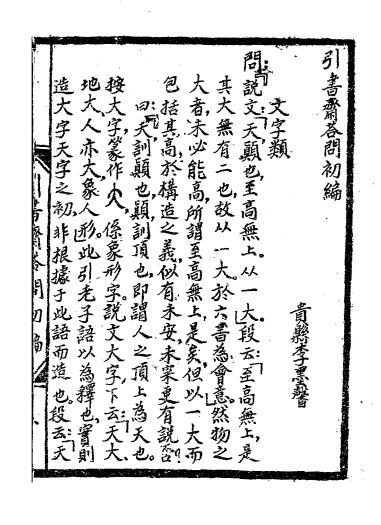 引書齋荅問初編
貴縣李墨馨
文字類
問:「說文:『天,顛也,至高無上。从一大。』段云:『至高無上,是
其大無有二也,故从一大。於六書為會意。』然物之
大者,未必能高,所謂至高無上,是矣。但以一大而
包括其高,於構造之義,似有未安,未案更有說否?」
曰:「天訓顛也,顛訓頂也,即謂人之頂上為天也。
按大字篆作大,係象形字。說文大字下云:『天大、
地大、人亦大,象人形。』此引老子語以為釋也,實則
造大字天字之初,非根據于此語而造也。段云:『天
引書齋荅問初編